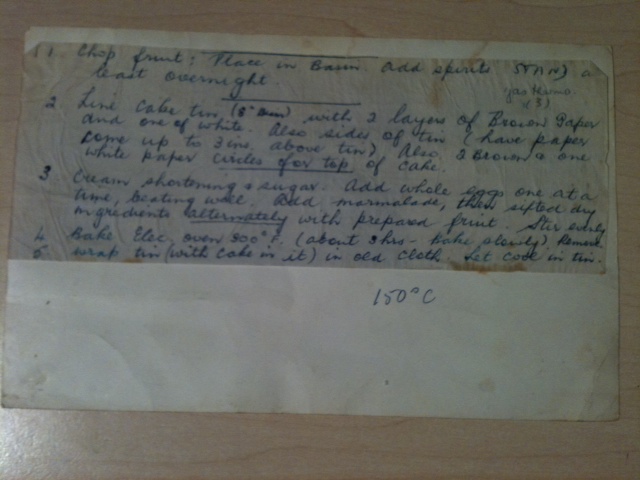 1 Chop fruit; Place in Basin. Add spirits STAND a
least overnight.
gas
(3)
2 Line cake tin (8" ) with 2 layers of Brown Paper
and one of white. Also sides of tin (have paper
come up to 3 ins. above tin) Also 2 Brown & one
white paper circles for top of cake.
3. Cream shortening & sugar. Add whole eggs one at a
time, beating well. Add marmalade, then sifted dry
ingredients alternately with prepared fruit. Stir evenly
4 Bake Elec oven 300°F. (about 3 hrs - bake slowly) Remove
5 wrap tin (with cake in it) in old cloth. Let cool in tin.
150°C